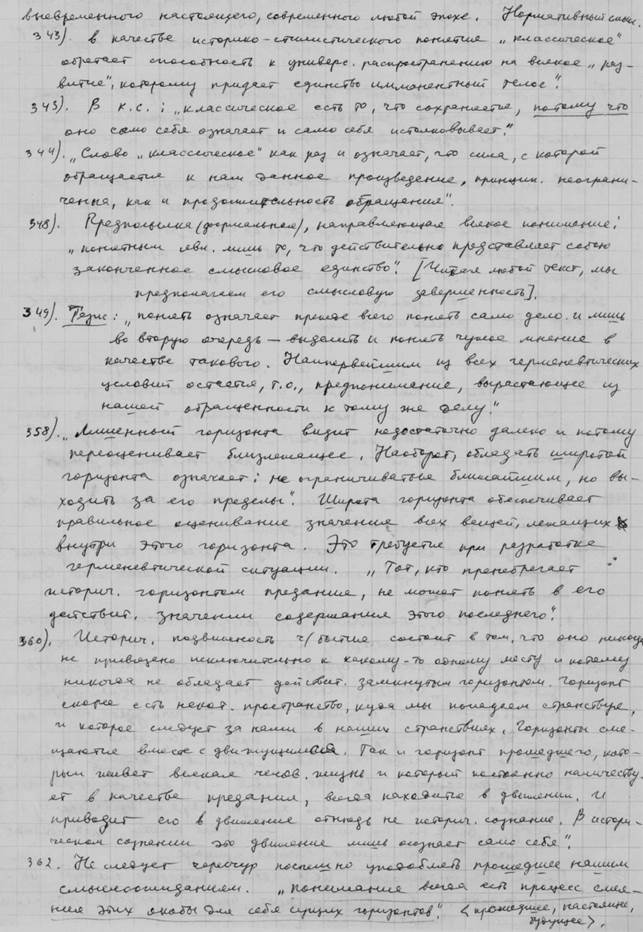 вневременного настоящего, современного любой эпохе. Нормативный смысл.
343). в качестве историко-стилистического понятия „классическое"
обретает способность к универс. распространению на всякое „раз-
витие", которому придает единство имманентный телос".
345). В к.с.: „классическое есть то, что сохраняется, потому что
оно само себя означает и само себя истолковывает."
344). „Слово „классическое" как раз и означает, что сила, с которой
обращается к нам данное произведение, принцип. неограни-
ченна, как и продолжительность обращения".
348). Предпосылка (формальная), направляющая всякое понимание:
„понятным явл. лишь то, что действительно представляет собою
законченное смысловое единство". [Читая любой текст, мы
предполагаем его смысловую завершенность].
349). Тезис: „понять означает прежде всего понять само дело и лишь
во вторую очередь – выделить и понять чужое мнение в
качестве такового. Наипервейшим из всех герменевтических
условий остается, т.о., предпонимание, вырастающее из
нашей обращенности к тому же делу."
358). „Лишенный горизонта видит недостаточно далеко и потому
переоценивает близлежащее. Наоборот, обладать широтой
горизонта означает: не ограничиваться ближайшим, но вы-
ходить за его пределы". Широта горизонта обеспечивает
правильное оценивание значение всех вещей, лежащих
внутри этого горизонта. Это требуется при разработке
герменевтической ситуации. „Тот, кто пренебрегает
историч. горизонтом предание, не может понять в его
действит. значении содержания этого последнего".
360). Историч. подвижность ч/бытия состоит в том, что оно никогда
не привязано исключительно к какому-то одному месту и потому
никогда не обладает действит. замкнутым горизонтом. Горизонт
скорее есть некот. пространство, куда мы попадаем странствуя,
и которое следует за нами в наших странствиях. Горизонты сме-
щаются вместе с движущимся. Так и горизонт прошедшего, кото-
рым живет всякая челов. жизнь и который постоянно наличеству-
ет в качестве предания, всегда находится в движении. И
приводит его в движение отнюдь не историч. сознание. В истори-
ческом сознании это движение лишь осознает само себя".
362. Не следует чересчур поспешно уподоблять прошедшее нашим
смыслоожиданиям. „Понимание всегда есть процесс слия-
ния этих якобы для себя сущих горизонтов". <прошедшее, настоящее,
будущее>.